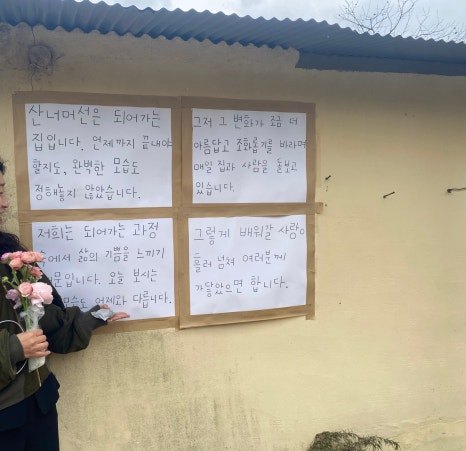 산너머선은 되어가는
집입니다. 언제까지 끝내야
할지도, 완벽한 모습도
정해놓지 않았습니다.
그저 그 변화가 조금 더
아름답고 조화롭기를 바라며
매일 집과 사람을 돌보고
있습니다.
저희는 되어가는 과정
에서 삶의 기쁨을 느끼기
문입니다. 오늘 보시는
모습도 어제와 다릅니다.
그렇게 배워갈 사랑이
흘러 넘쳐 여러분께
가닿았으면 합니다.